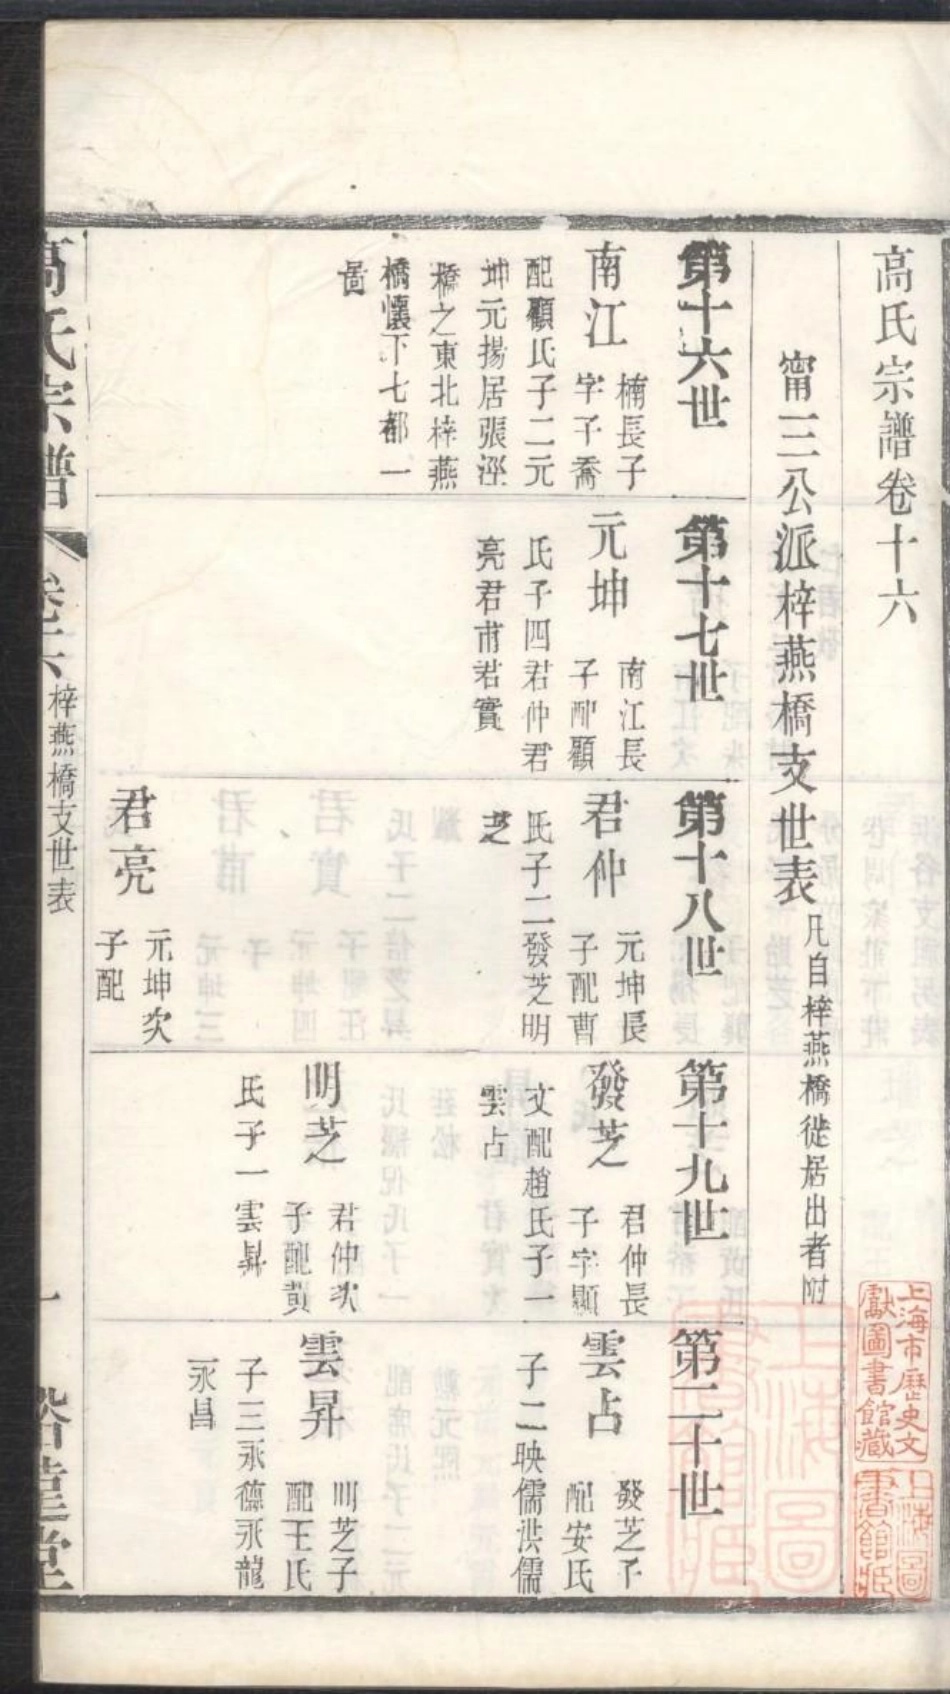 高氏宗譜卷十六
甯一三公派梓燕橋支世表凡自梓燕橋徙居出者附
第十六世
南江
楠長子
字子喬
配顧氏子二元
坤元揚居張涇
橋之東北梓燕
橋懷下七都一
啚
第十七世
元坤
南江長
子配顧
氏子四君仲君
亮君甫君實
第十八世
君仲
元坤長
子配曹
氏子二發芝明
芝
君亮
元坤次
子配
第十九世
發芝
君仲長
子字顯
文配趙氏子一
雲占
明芝
君仲次
子配黃
氏子一雲昇
第二十世
雲占
發芝子
配安氏
子二映儒洪儒
雲昇
明芝子
配王氏
子三永德永龍
永昌
高氏宗譜
卷十六
梓燕橋支世表
一
上海市歷史文
獻圖書館藏
上海圖
書館藏